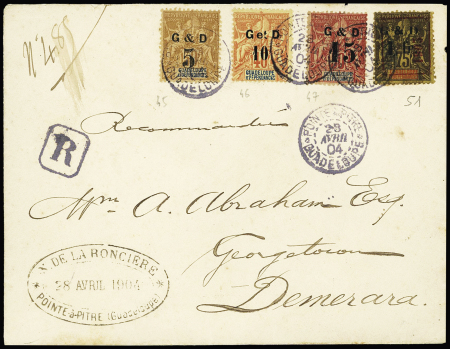 Nº 485
G & D
5
GUADELOUPE
ET DÉPENDANCES
G et D
10
GUADELOUPE
ET DÉPENDANCES
G & D
15
GUADELOUPE
ET DÉPENDANCES
75
45
46
47
51
Recommandée
R
POINTE-A-PITRE
28
AVRIL
04
GUADELOUPE
A. Abraham Esq.
Georgetown
Demerara.
V. DE LA RONCIÈRE
28 AVRIL 1904
POINTE-À-PITRE (Guadeloupe)